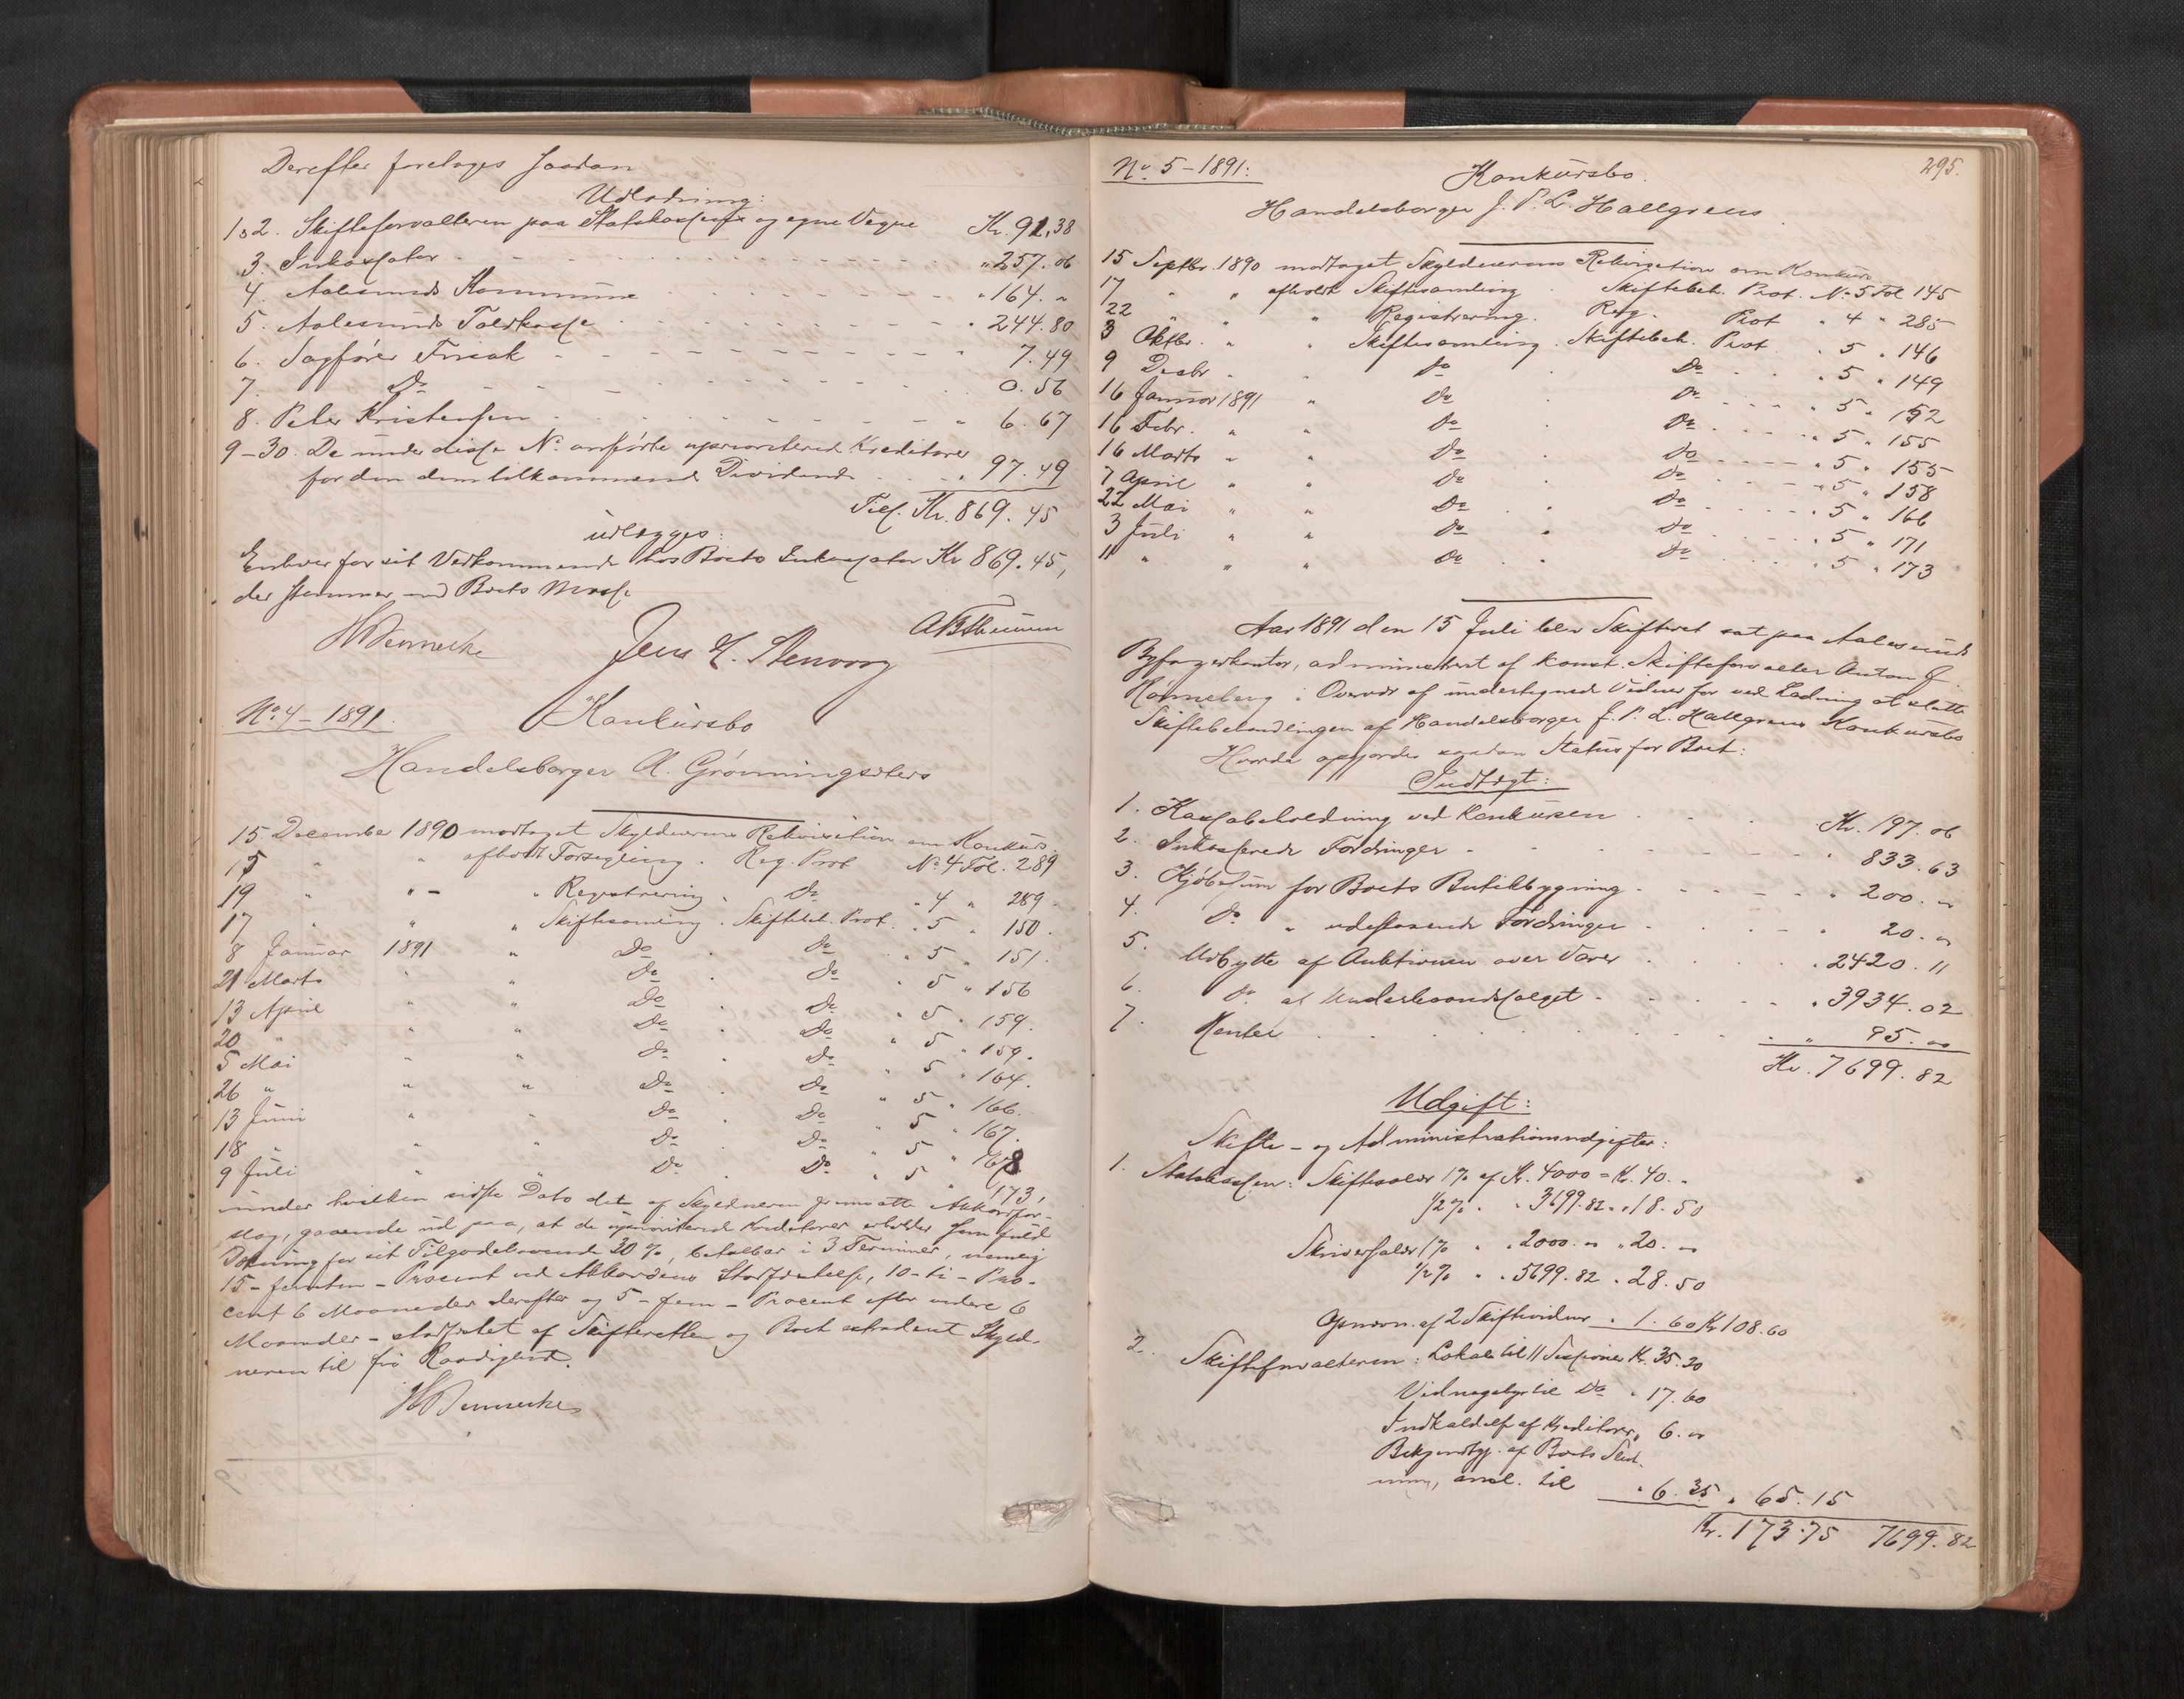 Derefter foretoges saadan
Udlodning:
1 & 2. Skifteforvalteren paa Statskassens og egne Vegne Kr. 91,38
3. Inkassator - - - " 257.06
4. Aalesunds Kommune - - - " 164. "
5. Aalesunds Toldkasse - - - " 244.80
6. Sagfører Frisak - - - 7.49
7. Do - - - 0.56
8. Peter Kristensen - - - " 6.67
9-30. De under disse No anførte uprioriterede Kreditorer
for den dem tilkommende Dividende - - - " 97.49
Tils. Kr. 869.45
udlægges:
Enhver for sit Vedkommende hos Boets Inkassator Kr 869.45,
der stemmer med Boets Masse
Jens L. Stenvoug
No 4 - 1891.
Konkursbo
Handelsborger A. Grønningsæters
15. December 1890 modtaget Skyldnerens Rekvisition om Konkurs.
15 " " afholdt Forsegling. Reg. Prot No 4 Fol. 289
19 " " - " Registrering. Do " 4 " 289.
17 " " " Skiftesamling. Skiftebeh. Prot. " 5 " 150.
8 Januar 1891 " Do . Do " 5 " 151.
21 Marts " " Do . Do " 5 " 156
13 April " " Do . Do " 5 " 159.
20 " " " Do . Do " 5 " 159.
5 Mai " " Do . Do " 5 " 164.
26 " " " Do . Do " 5 " 166.
13 Juni " " Do . Do " 5 " 167.
18 " " " Do . Do " 5 " 168
9 Juli " " Do . Do " 5 " 173,
under hvilken sidste Dato det af Skyldneren fremsatte Akkordfor-
slag, gaaende ud paa, at de uprioriterede Kreditorer erholder som fuld
Dækning for sit Tilgodehavende 30 %, betalbar i 3 Terminer, nemlig
15 - femten - Procent ved Akkordens Stadfæstelse, 10 - ti - Pro-
cent 6 Maaneder derefter og 5 - fem - Procent efter videre 6
Maaneder - stadfæstet af Skifteretten og Boet extraderet Skyld-
neren til fri Raadighed.
295.
No 5 - 1891:
Konkursbo.
Handelsborger J. P. L. Hallgrens
15 Septbr. 1890 modtaget Skyldnerens Rekvisition om Konkurs
17 " " afholdt Skiftesamling . Skiftebeh. Prot. No 5 Fol 145
22 " " " Registrering. Reg. Prot " 4 " 285
3 Oktbr. " " Skiftesamling. Skiftebeh. Prot " 5 " 146
9 Decbr " " Do . Do " 5 " 149
16 Januar 1891 " Do . Do " 5 " 152
16 Febr. " " Do . Do " 5 " 155
16 Marts " " Do . Do " 5 " 155
7 April " " Do . Do " 5 " 158
22 Mai " " Do . Do " 5 " 166
3 Juli " " Do . Do " 5 " 171
11 " " " Do . Do " 5 " 173
Aar 1891 den 15 Juli blev Skifteret sat paa Aalesunds
Byfogedkontor, administreret af konst. Skifteforvalter Anton J.
Rønneberg i Overvær af undertegnede Vidner for ved Lodning at slutte
Skiftebehandlingen af Handelsborger J. P. L. Hallgrens Konkursbo
Hvorda opgjordes saadan Status for Boet:
Indtægt:
1. Kassabeholdning ved Konkursen . . . Kr. 197.06
2. Inkasserede Fordringer - - - " 833.63
3. Kjøbesum for Boets Butikbygning - - - " 200. "
4. Do " udestaaende Fordringer . . . " 20. "
5. Udbytte af Auktionen over Varer . . . " 2420.11
6. Do af Underhaandssalget - - - " 3934.02
7. Renter . . . " 95. "
Kr. 7699.82
Udgift:
Skifte- og Administrationsudgifter:
1. Statskassen: Skiftesalær 1% af Kr. 4000 = Kr. 40. "
1/2 % " " 3699.82 " " 18.50
Skriversalær 1% " " 2000. " " 20. "
1/2 % " " 5699.82 " 28.50
Opnævn. af 2 Skiftevidner " 1.60 Kr 108.60
2. Skifteforvalteren: Lokale til 11 Sessioner Kr. 35.20
Vidnegebyr til Do " 17.60
Indkaldelse af Kreditorer " 6. "
Bekjendtgj. af Boets Slut-
ning, ansl. til " 6.35 " 65.15
Kr. 173.75 7699.82